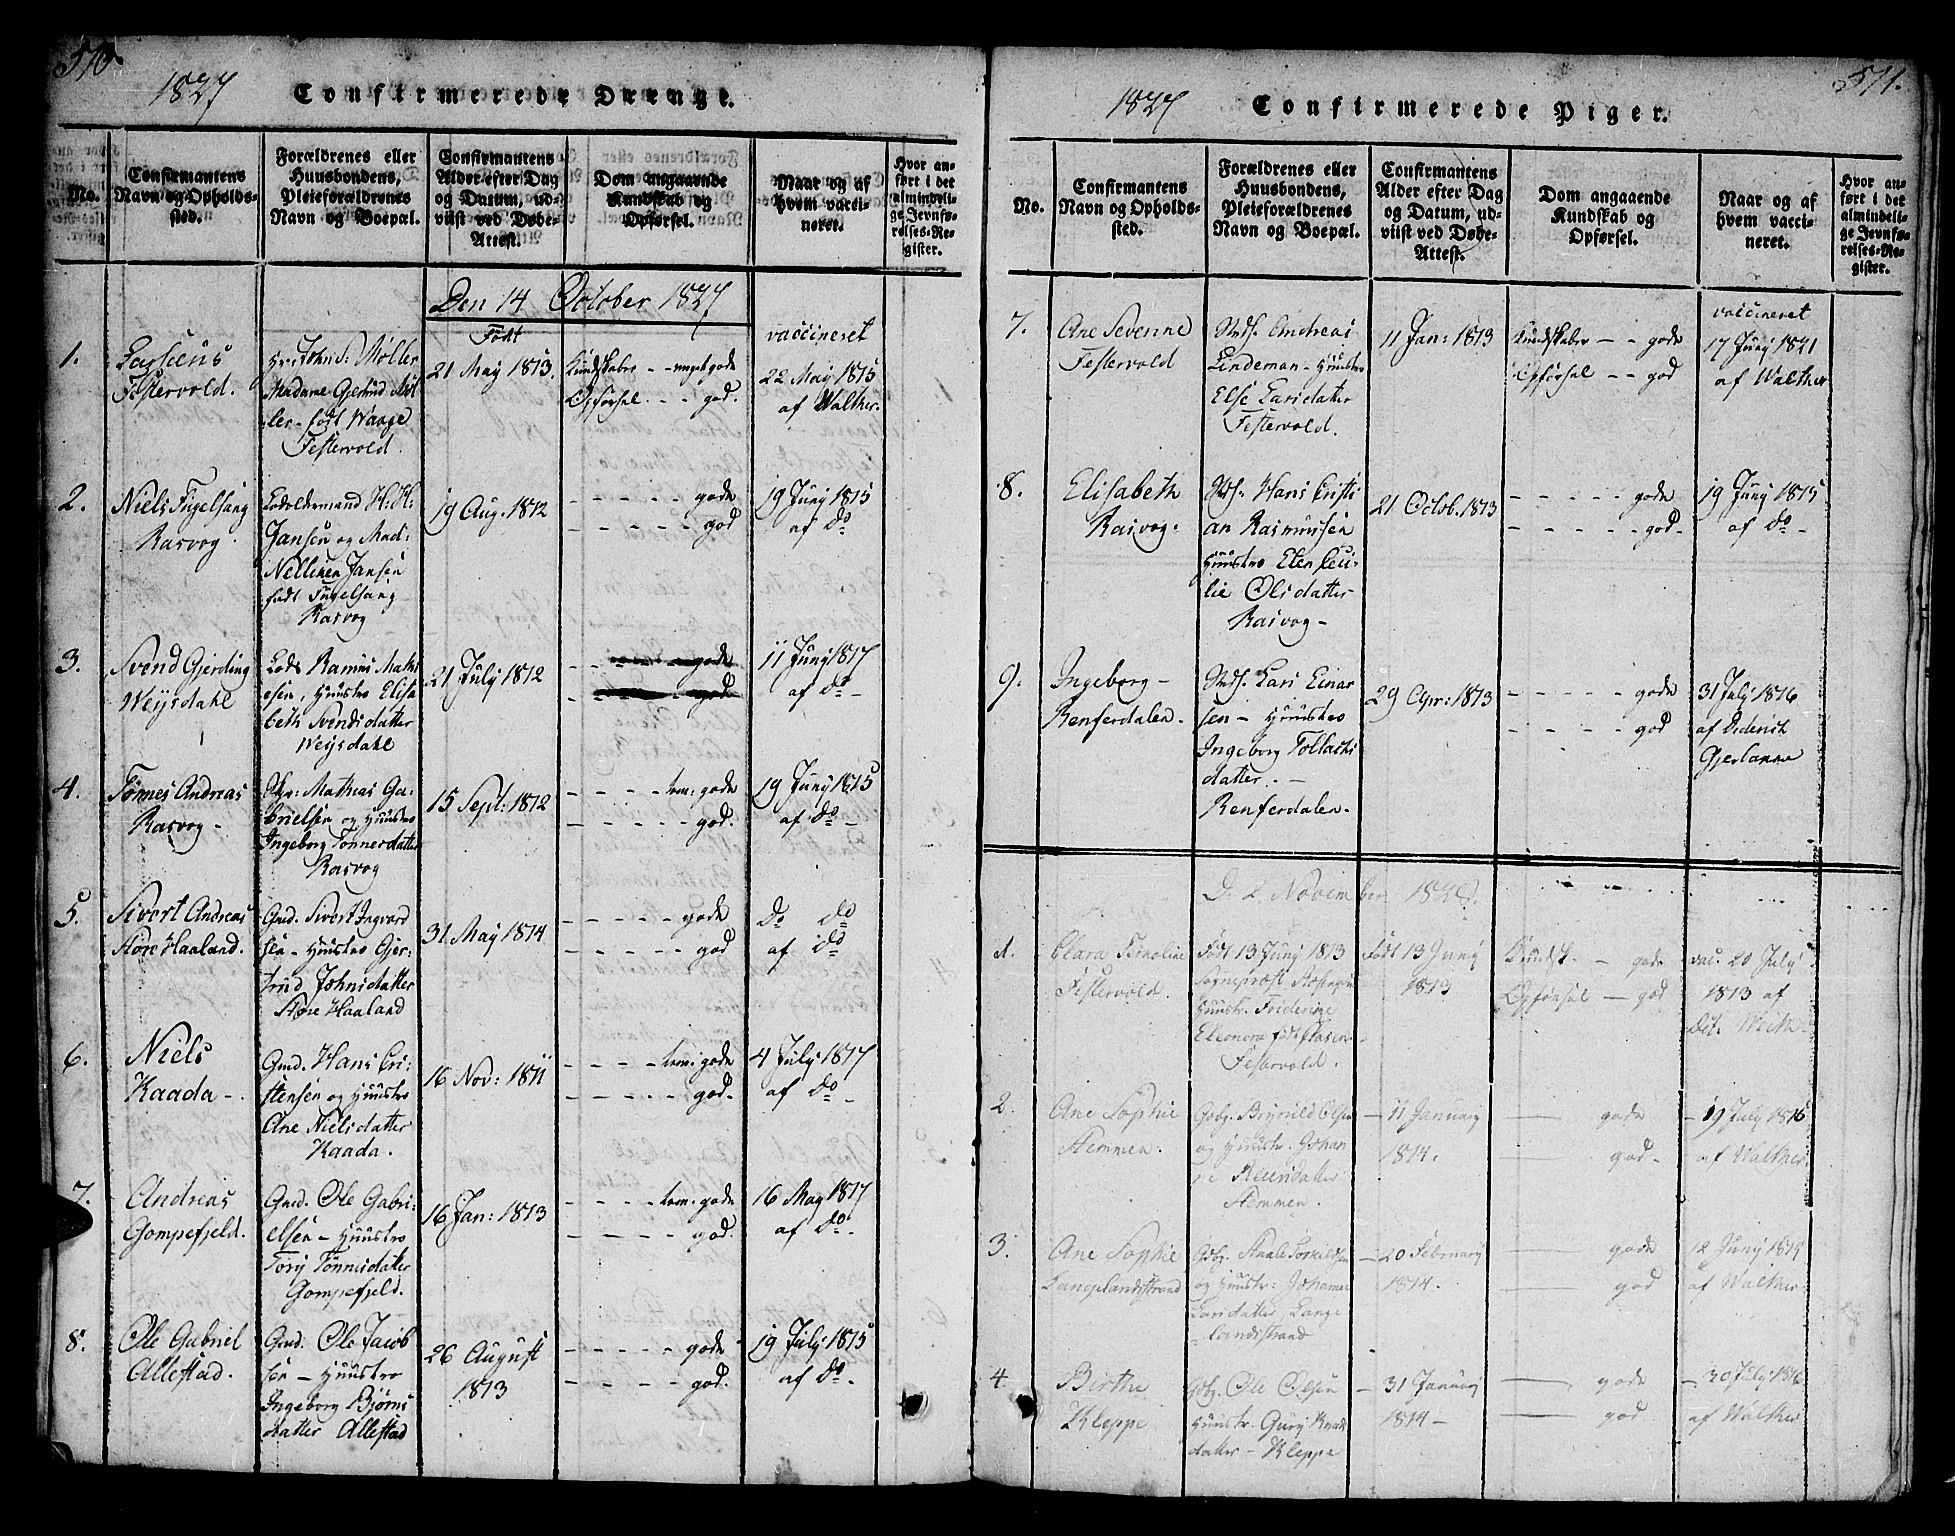 570.
1827 Confirmerede Drænge.
No.
Confirmantens
Navn og Opholds-
sted.
Forældrenes eller
Huusbondens,
Pleieforældrenes
Navn og Boepæl.
Confirmantens
Alder efter Dag
og Datum, ud-
viist ved Døbe-
Attest.
Dom angaaende
Kundskab og
Opførsel.
Naar og af
hvem vacci-
neret.
Hvor an-
ført i det
almindeli-
ge Jevnfø-
relses-Re-
gister.
Den 14 October 1827
1.
Festervold.
Hr: Johns: Möller
Madame Gertrud Möl-
ler - født Waage
Festervold.
Født
21 May 1813.
Kundskaber - - meget gode
Opførsel - - - god.
vaccineret
22 May 1815
af Walther.
2.
Niels Fugelsang
Rasvog
Lodsoldermand H: H:
Jansen og Mad:
Nelliken Jansen
født Fugelsang
Rasvog
19 Aug. 1812
- - - - - gode
- - - - - god
19 Juny 1815
af do
3.
Svend Gjerding
Weysdahl
Lods Ramus Math
esen, Huustro Elisa
beth Svendsdatter
Weysdahl
21 July 1812
- - - - gode
- - - - god
11 Juny 1817
af do -
4.
Tønnes Andreas
Rasvog -
Skr: Mathias Ga-
brielsen og Huustro
Ingeborg Tønnesdatter
Rasvog
15 Sept: 1812
- - - - tem: gode
- - - - - god.
19 Juny 1815
af do -
5.
Sivert Andreas
Store Haaland.
Gmd. Sivert Ingvard
sen - Huustro Gjer-
trud Johnsdatter
Store Haaland
31. May 1814
- - - - - gode
- - - - - god
do do
af do
6.
Niels
Kaada -.
Gmd. Hans Cri-
stensen og Huustro
Ane Nielsdatter
Kaada.
16 Nov: 1811
- - - - tem: gode
- - - - - god.
4 July 1817
af do -
7.
Andreas
Gompefjeld.
Gmd. Ole Gabri-
elsen - Huustro
Tory Tønnesdatter
Gompefjeld.
16 Jan: 1813
- - - - tem: gode
- - - - - god.
16 May 1817
af do.
8.
Ole Gabriel
Allestad.
Gmd. Ole Jacob
sen - Huustro
Ingeborg Bjørns
datter Allestad
26 August
1813
- - - - - gode
- - - - - god.
19 July 1815
af do.
571.
1827 Confirmerede Piger.
No.
Confirmantens
Navn og Opholds-
sted.
Forældrenes eller
Huusbondens,
Pleieforældrenes
Navn og Boepæl.
Confirmantens
Alder efter Dag
og Datum, ud-
viist ved Døbe-
Attest.
Dom angaaende
Kundskab og
Opførsel.
Naar og af
hvem vacci-
neret.
Hvor an-
ført i det
almindeli-
ge Jevnfø-
relses-Re-
gister.
7.
Ane Severine
Festervold
Strds. Andreas
Lindeman - Huustro
Else Larsdatter
Festervold.
11 Jan: 1813
Kundskaber - - gode
Opførsel - - god
vaccineret
17 Juny 1821
af Walther
8.
Elisabeth
Rasvog.
Strds. Hans Cristi
an Rasmussen
Huustro Elen Ceci-
lie Olsdatter
Rasvog -
21 Octob. 1813
- - - - - gode
- - - - - god-
19 Juny 1815
af do -
9.
Ingeborg -
Renferdalen.
Strds. Lars Einar
sen - Huustro
Ingeborg Tollachs
datter. -
Renferdalen.
29 Apr: 1813
- - - - - gode
- - - - god
31 July 1816
af Diderich
D. 2 November 1828.
1.
Clara
Festervold.
Født 13 Juny 1813
Sogneprest
Huustr. Friderike
Eleonora født
Festervold.
Født 13 Juny
1813
Kundsk. - gode
Opførsel - god
vac. 20 July
1813 af
2.
Ane Sophie
Hemmen.
Gbg. Brynild Olsen
og Huustr. Johan
ne Reiersdatter
Hemmen.
- 11 January
1814.
gode
god -
- 19 July 1816
af Walther.
3.
Ane Sophie
Langelandstrand
Gbg. Staale Torkildsen
og Huustr: Johanne
Larsdatter Lange
landstrand
- 20 February
1814.
gode
god
12 Juny 1815
af Walther.
4.
Birthe
Kleppe
Gbg. Ole Olsen
Huustr. Gury Knuds
datter - Kleppe
- 31 January
1814 -
gode
god
- 30 July 1816
af Walther